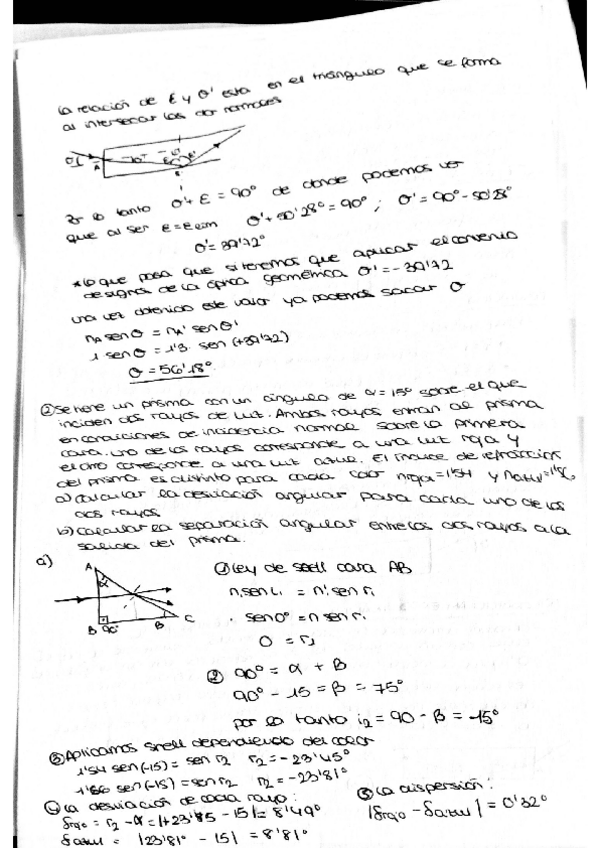 La relación de ε y θ' esta en el triángulo que se forma
al intersecar las dos normales
θ
A
ε
Por lo tanto θ' + ε = 90° de donde podemos ver
que al ser ε = εlim θ' + 50'28° = 90° ; θ' = 90° - 50'28°
θ' = 39'72°
* lo que pasa que si tenemos que aplicar el convenio
de signos de la óptica geométrica θ' = -39'72
una vez obtenido este valor ya podemos sacar θ
nA sen θ = nA' sen θ'
1 sen θ = 1'3 · sen (+39'72)
θ = 56'18°
② Se tiene un prisma con un ángulo de α = 15° sobre el que
inciden dos rayos de luz. Ambos rayos entran al prisma
en condiciones de incidencia normal sobre la primera
cara. uno de los rayos corresponde a una luz roja y
el otro corresponde a una luz azul. El índice de refracción
del prisma es distinto para cada color nroja=1'54 y nazul=1'56,
a) calcular la desviación angular para cada uno de los
dos rayos
b) calcular la separación angular entre los dos rayos a la
salida del prisma.
a)
A
α
B 90° β C
① Ley de snell cara AB
n, sen i, = n'. sen r,
sen 0° = n sen r,
0 = r,
② 90° = α + β
90° - 15 = β = 75°
por lo tanto i2 = 90 - β = -15°
③ Aplicamos snell dependiendo del color
1'54 sen (-15) = sen r2 r2 = -23'45°
1'56 sen (-15) = sen r2 r2 = -23'81°
④ La desviación de cada rayo:
δrojo = r2 - α = |+23'85 - 15| = 8'49°
δazul = |23'81° - 15| = 8'81°
⑤ La dispersión:
|δrojo - δazul| = 0'32°